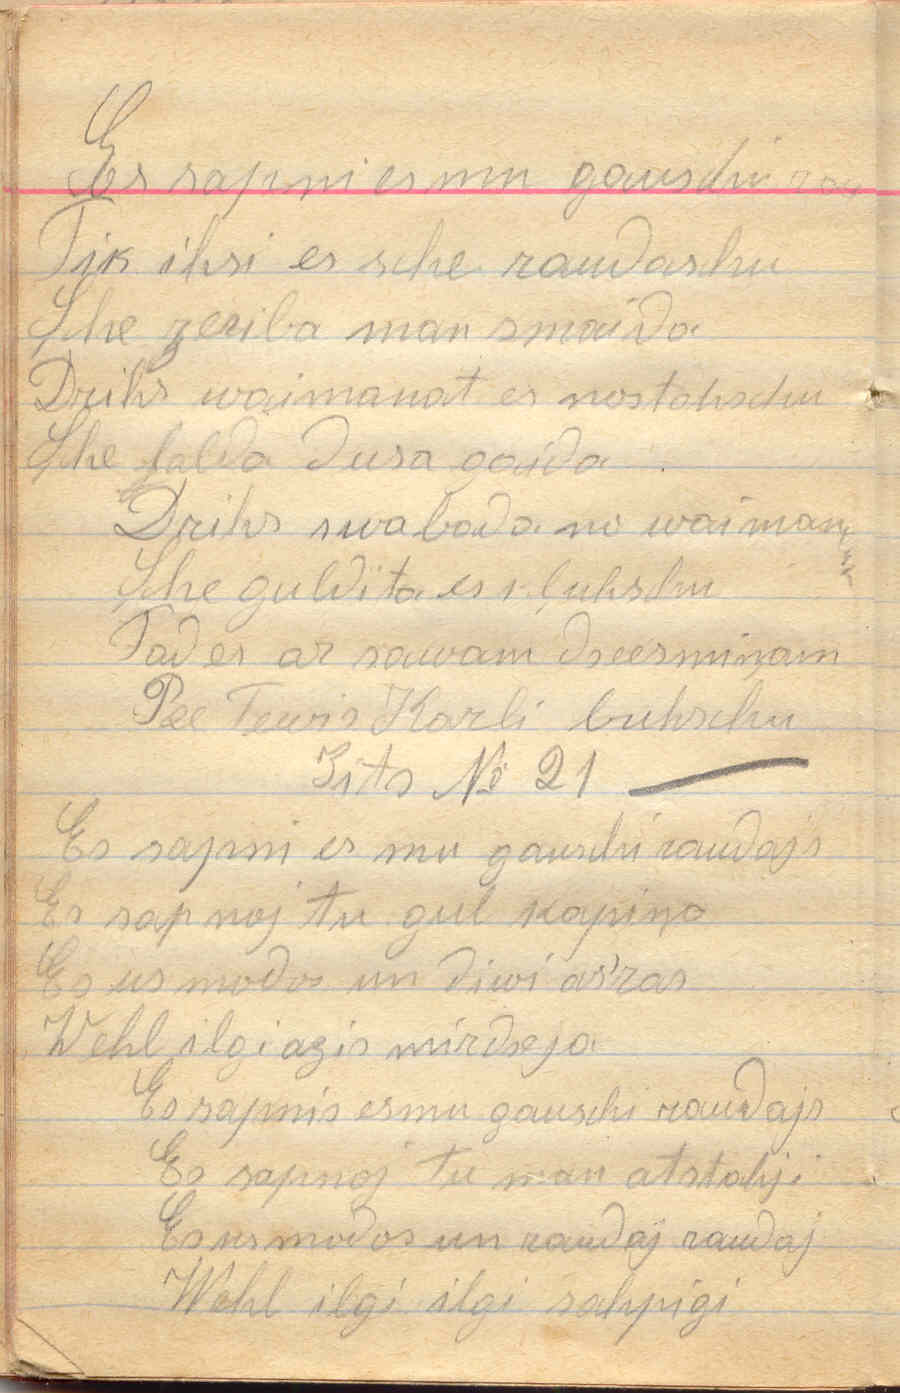 Es sapni esmu gauschi
Tik ihsi es sche raudaschu
Sche zeriba man smaida
Drihs waimanat es nostahschu
Sche salda dusa gaida
Drihs swabada no waiman
Sche guldita es kluhschu
Tad es ar sawam dseesmiņam
Pee Tewis Karli buhschu
Zits № 21
Es sapni esmu gauschi raudajs
Es sapnoj tu gul kapiņa
Es usmodos un diwi as'ras
Wehl ilgi azis mirdseja
Es sapnis esmu gauschi raudajs
Es sapnoj tu man atstahji
Es usmodos un raudaj raudaj
Wehl ilgi ilgi sahpigi